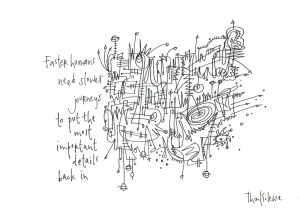 Faster humans
need slower
journeys
to put the
most
important
details
back in